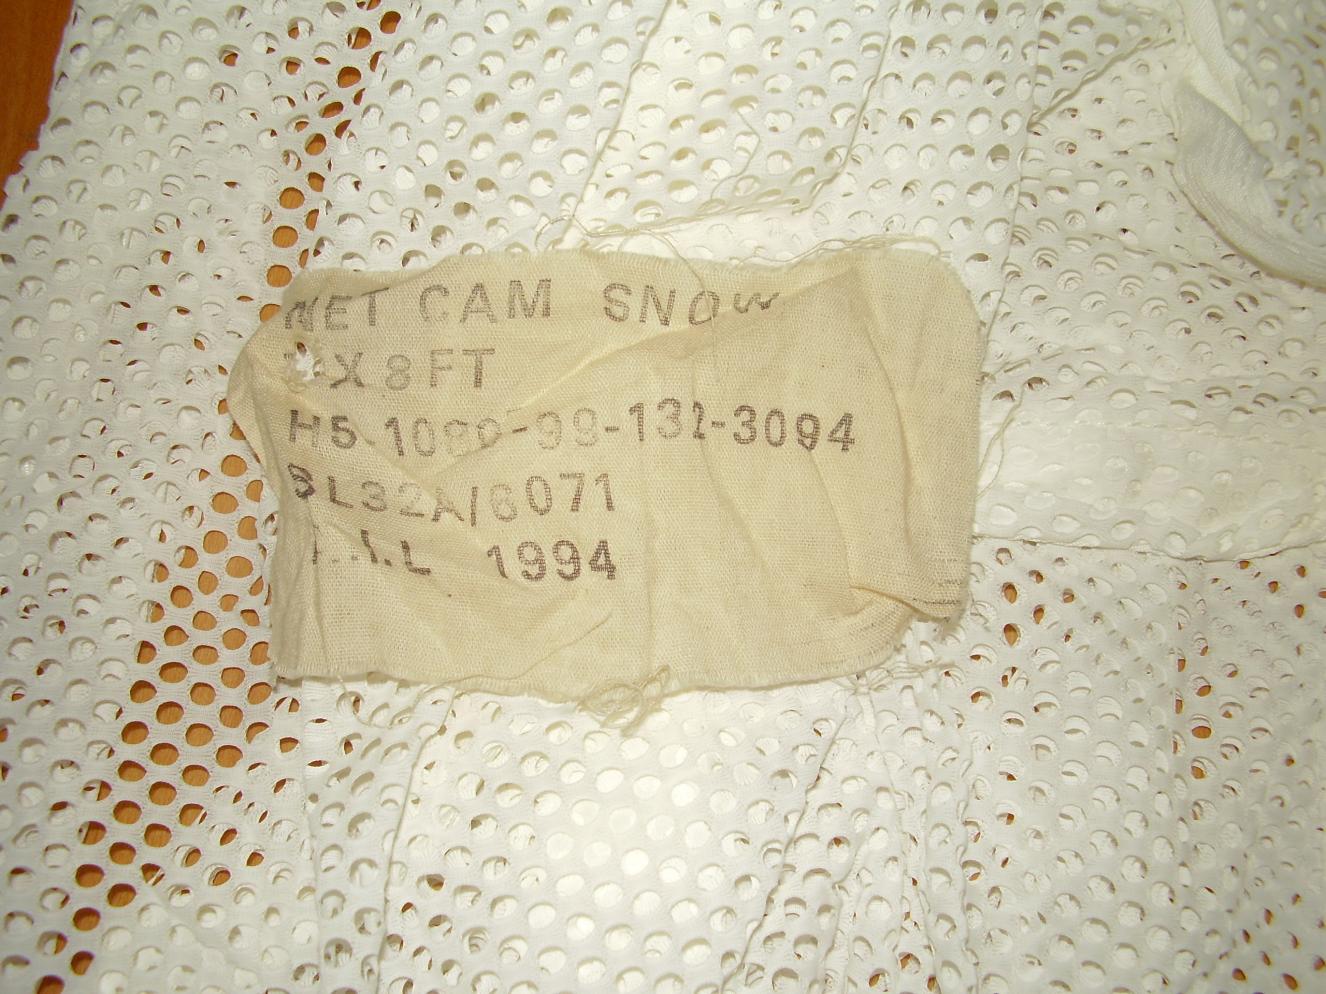 NET CAM SNOW
X 8 FT
H5 1080-99-132-3094
SL32A/6071
1994